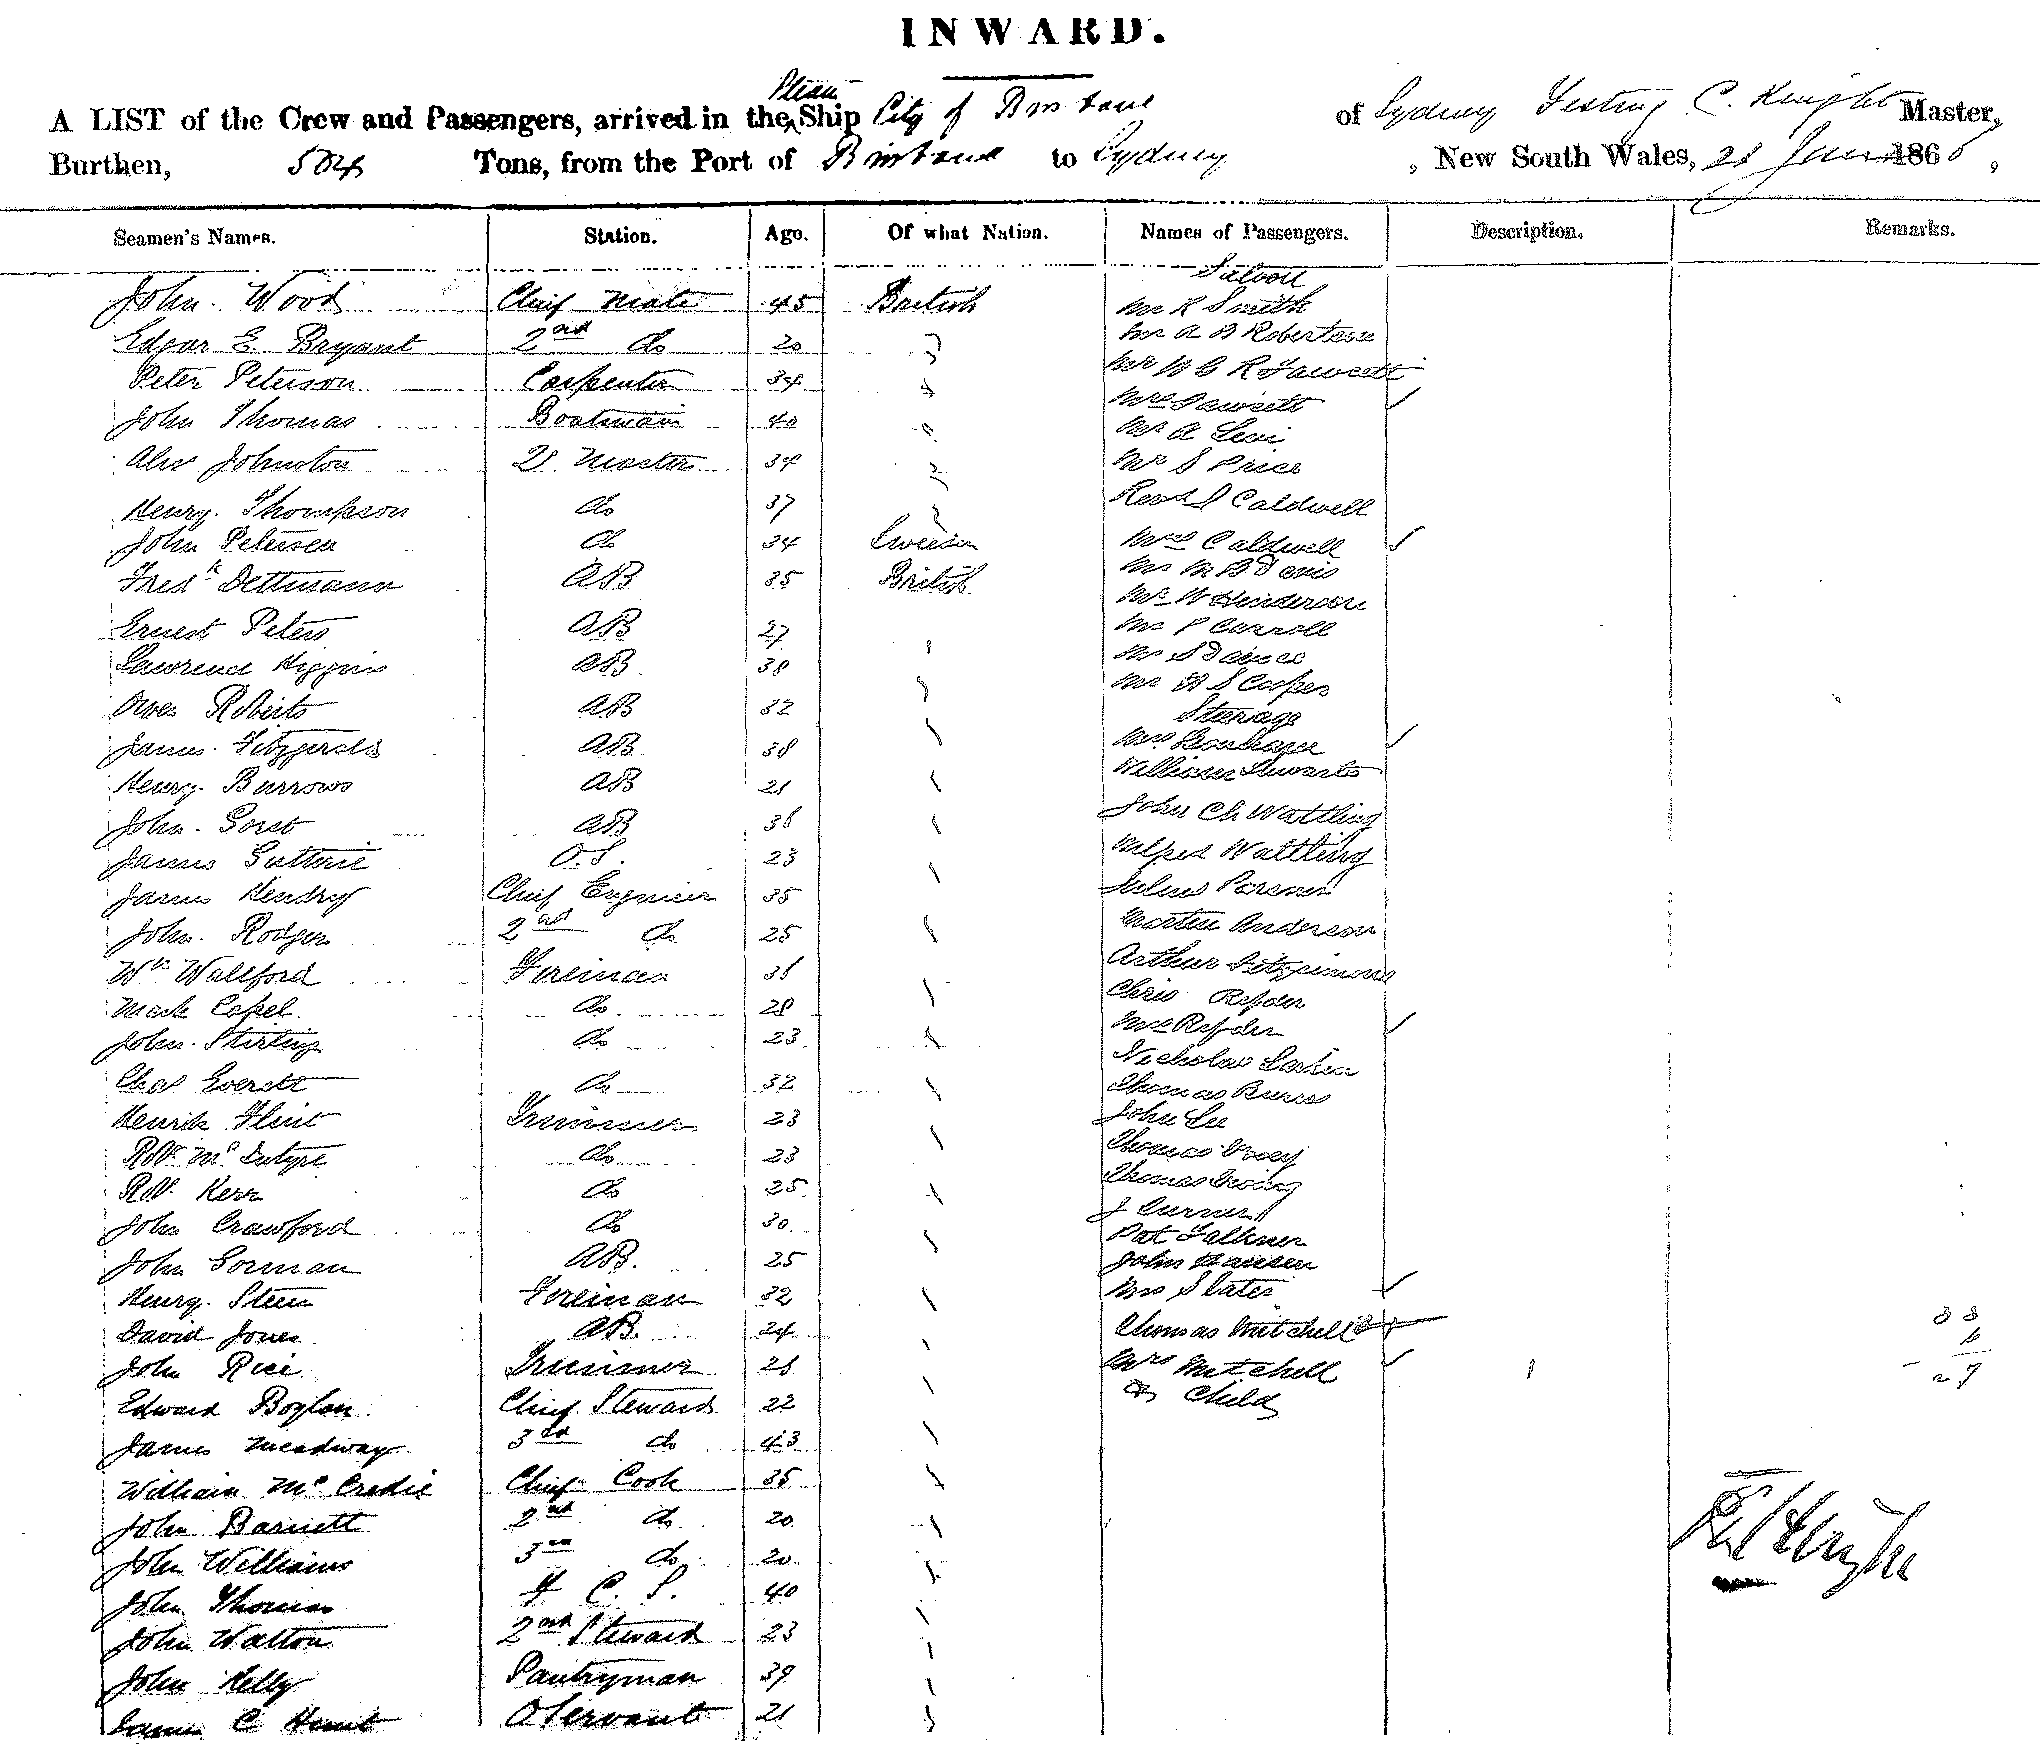 INWARD.
A LIST of the Crew and Passengers, arrived in the Steam Ship City of Brisbane of Sydney C. Knight Master,
Burthen, 504 Tons, from the Port of Brisbane to Sydney, New South Wales, 21 June 1866,
Seamen's Names. Station. Age. Of what Nation. Names of Passengers. Description. Remarks.
Saloon
John Wood Chief Mate 45 British Mr R Smith
Edgar E. Bryant 2nd do 20 Mr A B Robertson
Peter Peterson Carpenter 34 Mr R Fawcett
John Thomas Boatswain 40 Mrs Fawcett
Mr A Levi
Alex Johnston Q. Master 34 Mr S Price
Henry Thompson do 37 Revd J Caldwell
John Petersen do 34 Sweden Mrs Caldwell
Fredk Dettmann AB 35 British Mr M B Davis
Mr W Henderson
Ernest Peters AB 27 Mr P Carroll
Lawrence Higgins AB 38
Mr H S Cooper
Owen Roberts AB 32 Steerage
James Fitzgerald AB 38 Mrs
Henry Burrows AB 21 William
John AB 36 John Ch Wattling
James Guthrie O.S. 23 Alfred Wattling
James Hendry Chief Engineer 35 Julius
John Rodger 2nd do 25 Martin Anderson
Wm Wallford Fireman 36 Arthur Fitzsimons
Mark Capel do 28 Chris Ryder
John Stirling do 23 Mrs Ryder
Nicholas Larkin
Chas Everett do 32 Thomas Burns
Henrik Flint Trimmer 23 John Lee
Robt McIntyre do 23 Thomas
Robt Kerr do 25 Thomas Irving
John Crawford do 30 J Turner
Pat Falkner
John Gorman AB. 25 John Hansen
Henry Steen Fireman 32 Mrs Slater
David Jones AB. 24 Thomas Mitchell
John Rice Trimmer 21 Mrs Mitchell
Edward Boylan Chief Steward 22 & Child
James Meadway 3rd do 43
William McCredie Chief Cook 35
John Barnett 2nd do 20
John Williams 3rd do 20
John Thomas F. C. S. 40
John Walton 2nd Steward 23
John Kelly Pantryman 39
James C Hunt O Servant 21